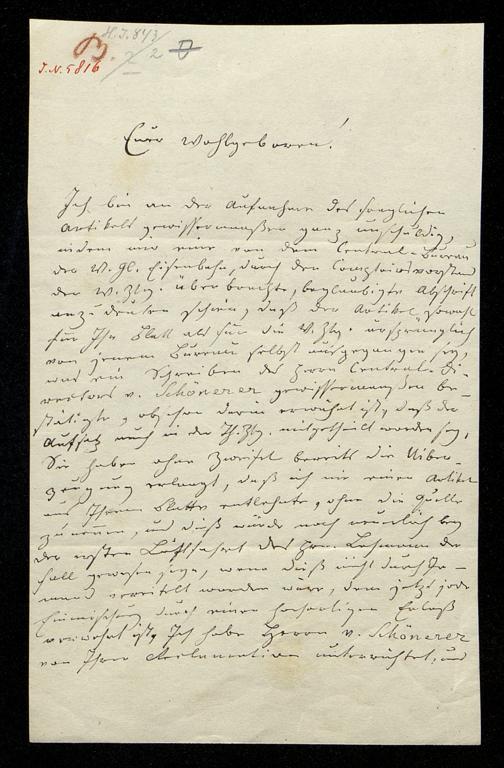 H.I. 843
B.
2
I.N. 5816
Euer Wohlgeboren!
Ich bin an der Aufnahme des fraglichen
Artikels gewissermaßen ganz unschuldig,
indem mir eine von dem Central-Bureau
der W. Gl. Eisenbahn, durch den Comptoirvorstand
der W. Ztg. überbrachte, beglaubigte Abschrift
anzudeuten schien, daß der Artikel sowohl
für Ihr Blatt als für die W. Ztg. ursprünglich
von jenem Bureau selbst ausgegangen sey,
was ein Schreiben des Herrn Central-Di-
rectors v. Schönerer gewissermaßen be-
stätigte, obschon darin erwähnt ist, daß der
Aufsatz auch in der Th. Ztg. mitgetheilt worden sey,
Sie haben ohne Zweifel bereits die Ueber-
zeugung erlangt, daß ich nie einen Artikel
aus Ihrem Blatte entlehnte, ohne die Quelle
zu nennen, und dieß würde noch neulich bey
der ersten Luftfahrt des Hrn. Lehmann der
Fall gewesen seyn, wenn dieß nicht durch Je-
mand vereitelt worden wäre, dem jetzt jede
Einmischung durch einen hochortigen Erlaß
verwehrt ist. Ich habe Herrn v. Schönerer
von Ihrer Reclamation unterrichtet, und